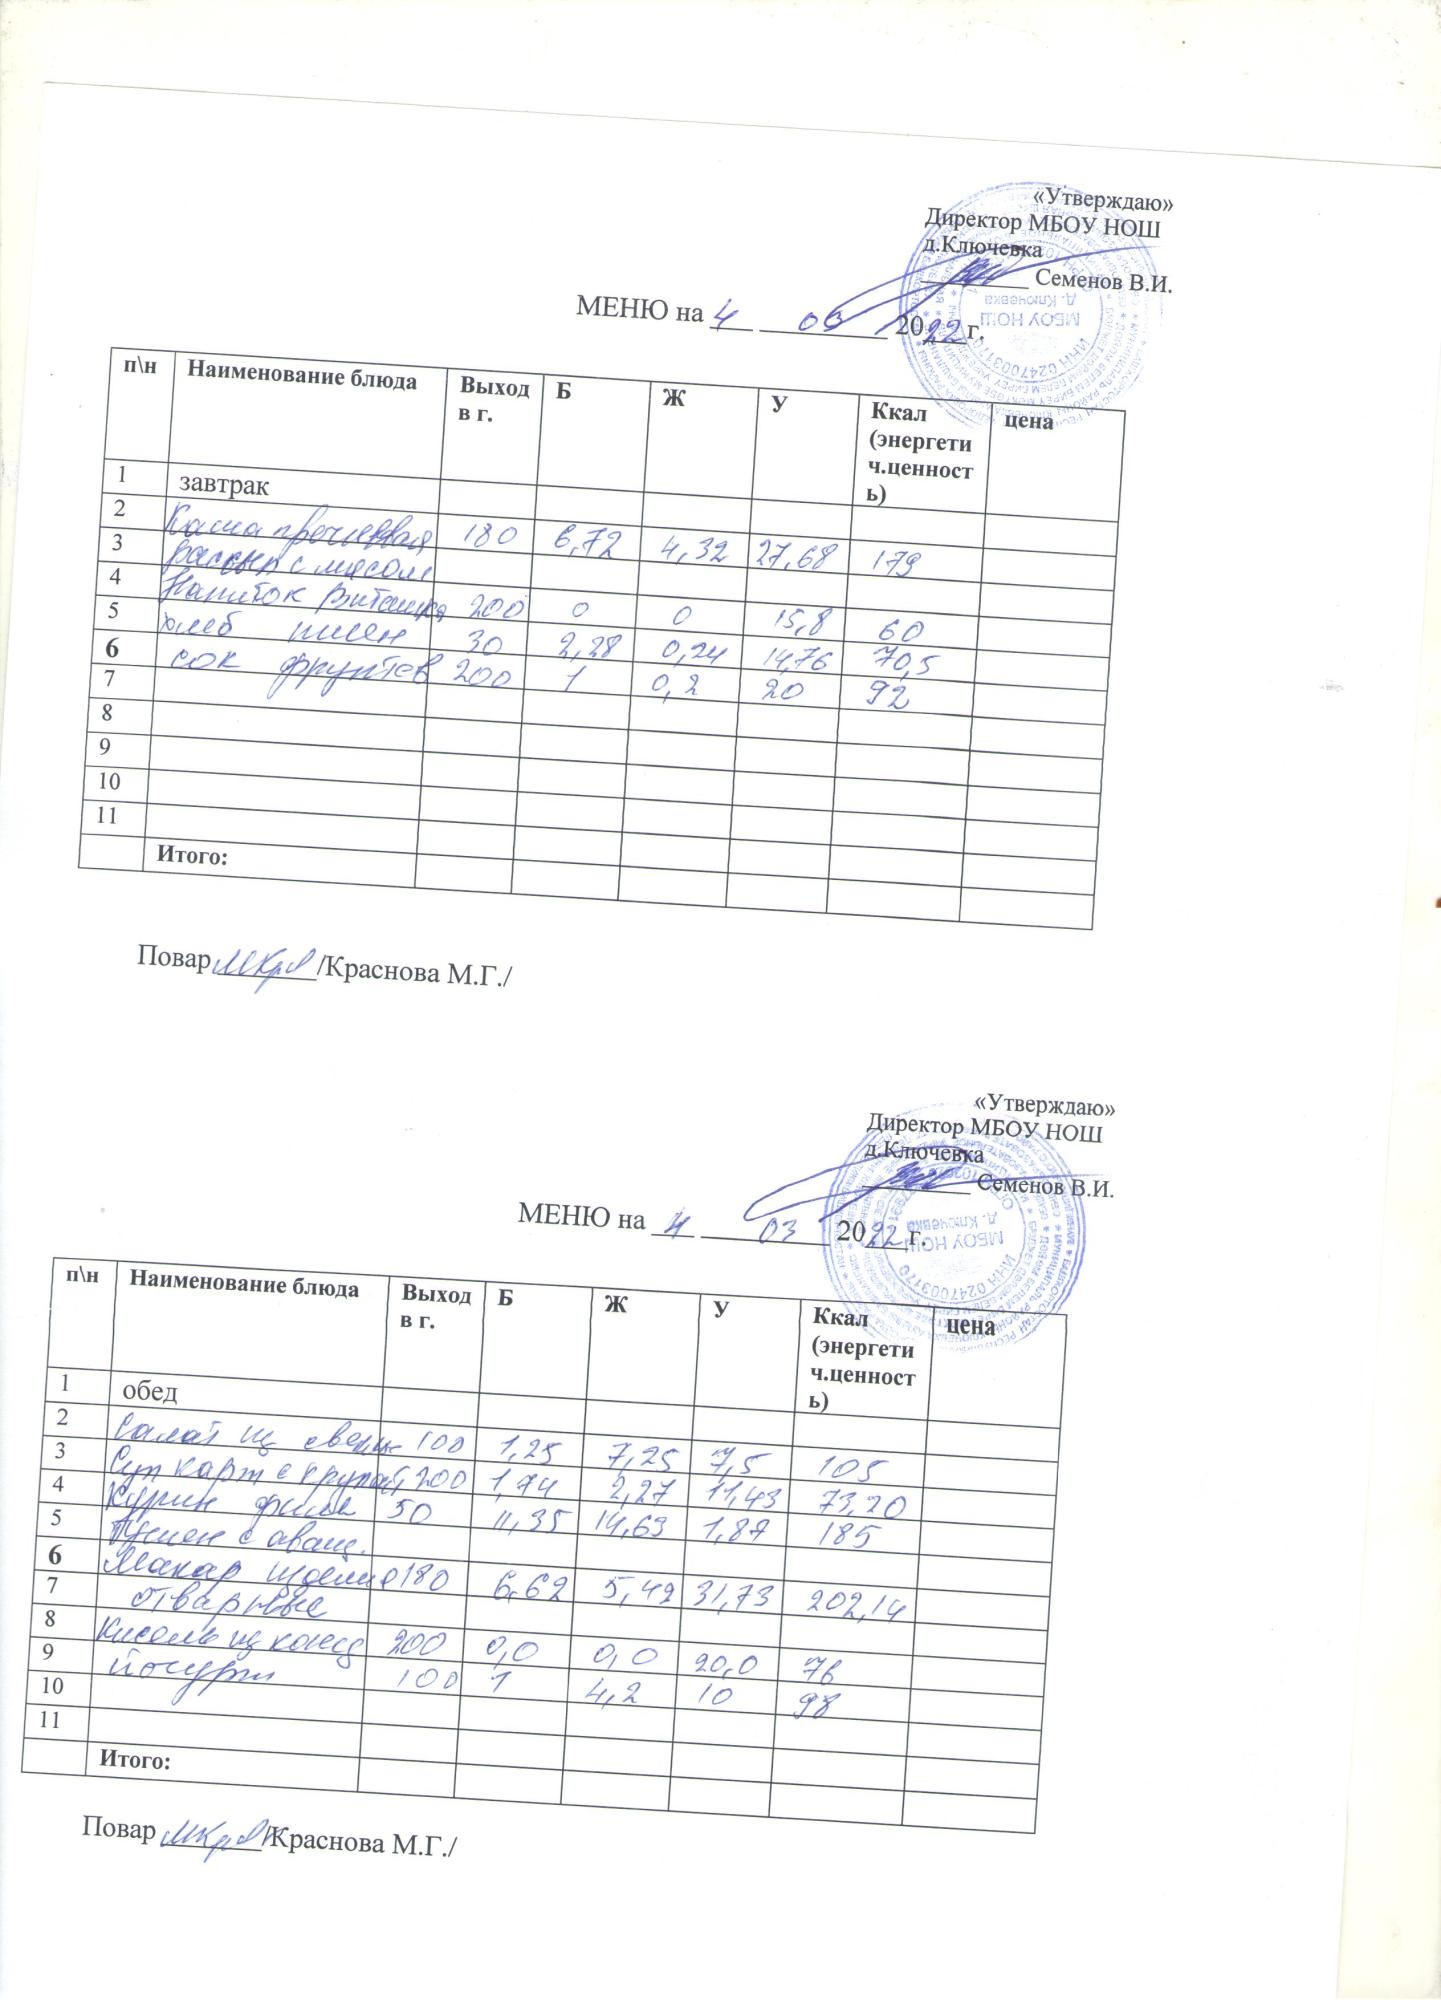 «Утверждаю»
Директор МБОУ НОШ
д.Ключевка
Семенов В.И.
МЕНЮ на 4 03 2022г.
п\н Наименование блюда Выход в г. Б Ж У Ккал (энергетич.ценность) цена
1 завтрак
2 Каша гречневая 180 6,72 4,32 27,68 179
3 рассып с мясом
4 Напиток Виташка 200 0 0 15,8 60
5 хлеб пшен 30 2,28 0,24 14,76 70,5
6 сок фруктов 200 1 0,2 20 92
7
8
9
10
11
Итого:
Повар /Краснова М.Г./
«Утверждаю»
Директор МБОУ НОШ
д.Ключевка
Семенов В.И.
МЕНЮ на 4 03 2022г.
п\н Наименование блюда Выход в г. Б Ж У Ккал (энергетич.ценность) цена
1 обед
2 Салат из свеклы 100 1,25 7,25 7,5 105
3 Суп карт с крупой 200 1,74 2,27 11,43 73,20
4 Курин филе 50 11,35 14,63 1,87 185
5 тушен с овощ.
6 Макар изделия 180 6,62 5,42 31,73 202,14
7 отварные
8 Кисель из конц 200 0,0 0,0 20,0 76
9 йогурт 100 1 4,2 10 98
10
11
Итого:
Повар /Краснова М.Г./
МБОУ НОШ
д. Ключевка
ИНН 0247003170